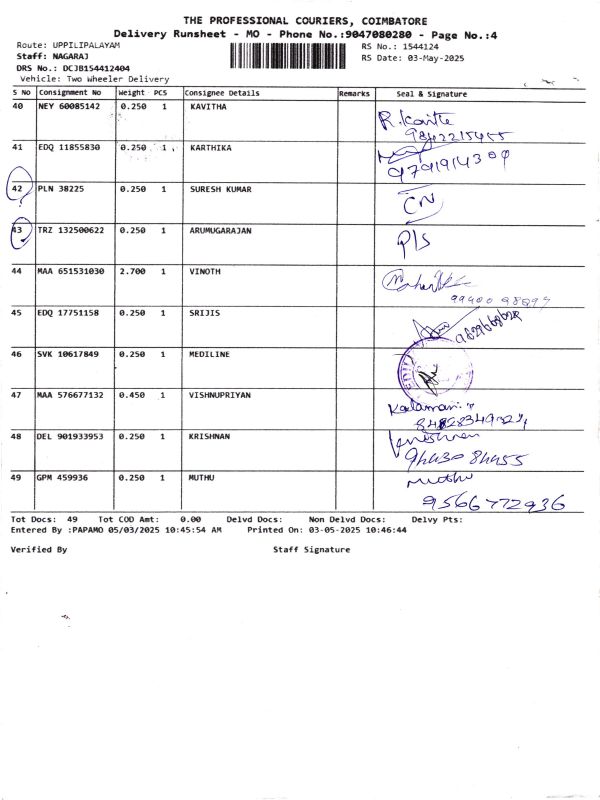 THE PROFESSIONAL COURIERS, COIMBATORE
Delivery Runsheet - MO - Phone No.:9047080280 - Page No.:4
Route: UPPILIPALAYAM RS No.: 1544124
Staff: NAGARAJ RS Date: 03-May-2025
DRS No.: DCJB154412404
Vehicle: Two Wheeler Delivery
S No Consignment No Weight PCS Consignee Details Remarks Seal & Signature
40 NEY 60085142 0.250 1 KAVITHA
41 EDQ 11855830 0.250 1 KARTHIKA
9791914309
42 PLN 38225 0.250 1 SURESH KUMAR CN
43 TRZ 132500622 0.250 1 ARUMUGARAJAN P/S
44 MAA 651531030 2.700 1 VINOTH
45 EDQ 17751158 0.250 1 SRIJIS
46 SVK 10617849 0.250 1 MEDILINE
47 MAA 576677132 0.450 1 VISHNUPRIYAN
48 DEL 901933953 0.250 1 KRISHNAN
49 GPM 459936 0.250 1 MUTHU Muthu
9566772936
Tot Docs: 49 Tot COD Amt: 0.00 Delvd Docs: Non Delvd Docs: Delvy Pts:
Entered By :PAPAMO 05/03/2025 10:45:54 AM Printed On: 03-05-2025 10:46:44
Verified By Staff Signature